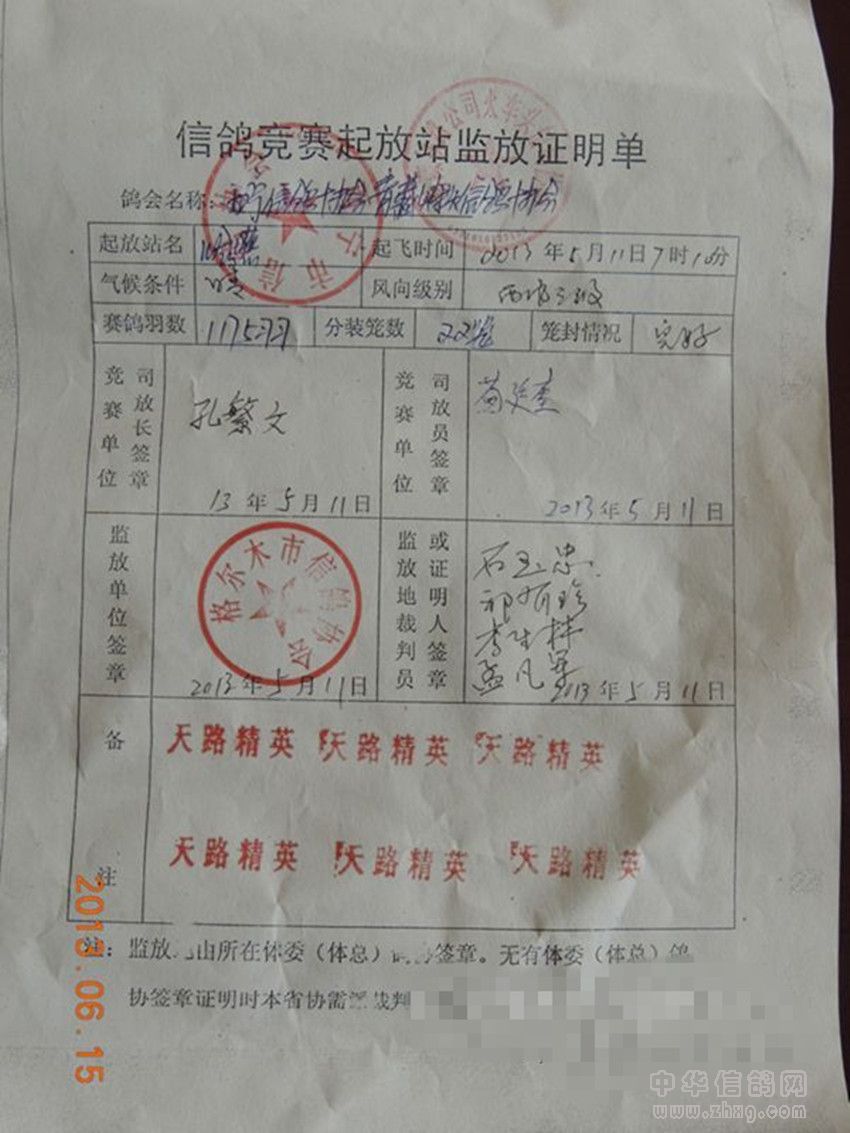 信鸽竞赛起放站监放证明单
鸽会名称：西宁信鸽协会青藏 信鸽协会
起放站名 起飞时间 2013年5月11日7时10分
气候条件 晴 风向级别 西北三级
赛鸽羽数 1175羽 分装笼数 22笼 笼封情况 完好
竞赛单位 司放长签章 孔繁文 13年5月11日
竞赛单位 司放员签章 2013年5月11日
监放单位签章 格尔木市信鸽协会 2013年5月11日
监放地裁判员 或证明人签章 石玉忠
祁有珍
李生梓
孟凡军 2013年5月11日
备注
天路精英 天路精英 天路精英
天路精英 天路精英 天路精英
注：监放 由所在体委（体总） 签章。无有体委（体总）鸽
协签章证明时本省协需 裁判
2013.06.15
中华信鸽网
www.zhxg.com